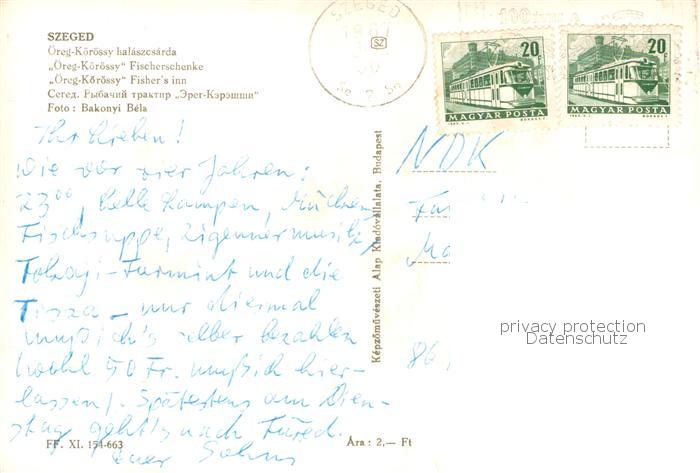 SZEGED
Öreg-Kőrössy halászcsárda
„Öreg-Kőrössy" Fischerschenke
„Öreg-Kőrössy" Fisher's inn
Сегед. Рыбачий трактир „Эрег-Кэрэшши"
Foto : Bakonyi Béla
Ihr Lieben!
Wie vor vier Jahren:
23⁰⁰, helle Lampen, Mücken
Fischsuppe, Zigeunermusik,
Tokaji-Furmint und die
Tisza – nur diesmal
muß ich's selber bezahlen
(wohl 50 Fr. muß ich hier-
lassen). Spätestens am Diens-
tag geht's nach Füred.
Euer Sohn
FF. XI. 154-663
Ára : 2,— Ft
Képzőművészeti Alap Kiadóvállalata, Budapest
SZEGED
SZ
100
20 f
MAGYAR POSTA
20 f
MAGYAR POSTA
NDK
86
privacy protection
Datenschutz